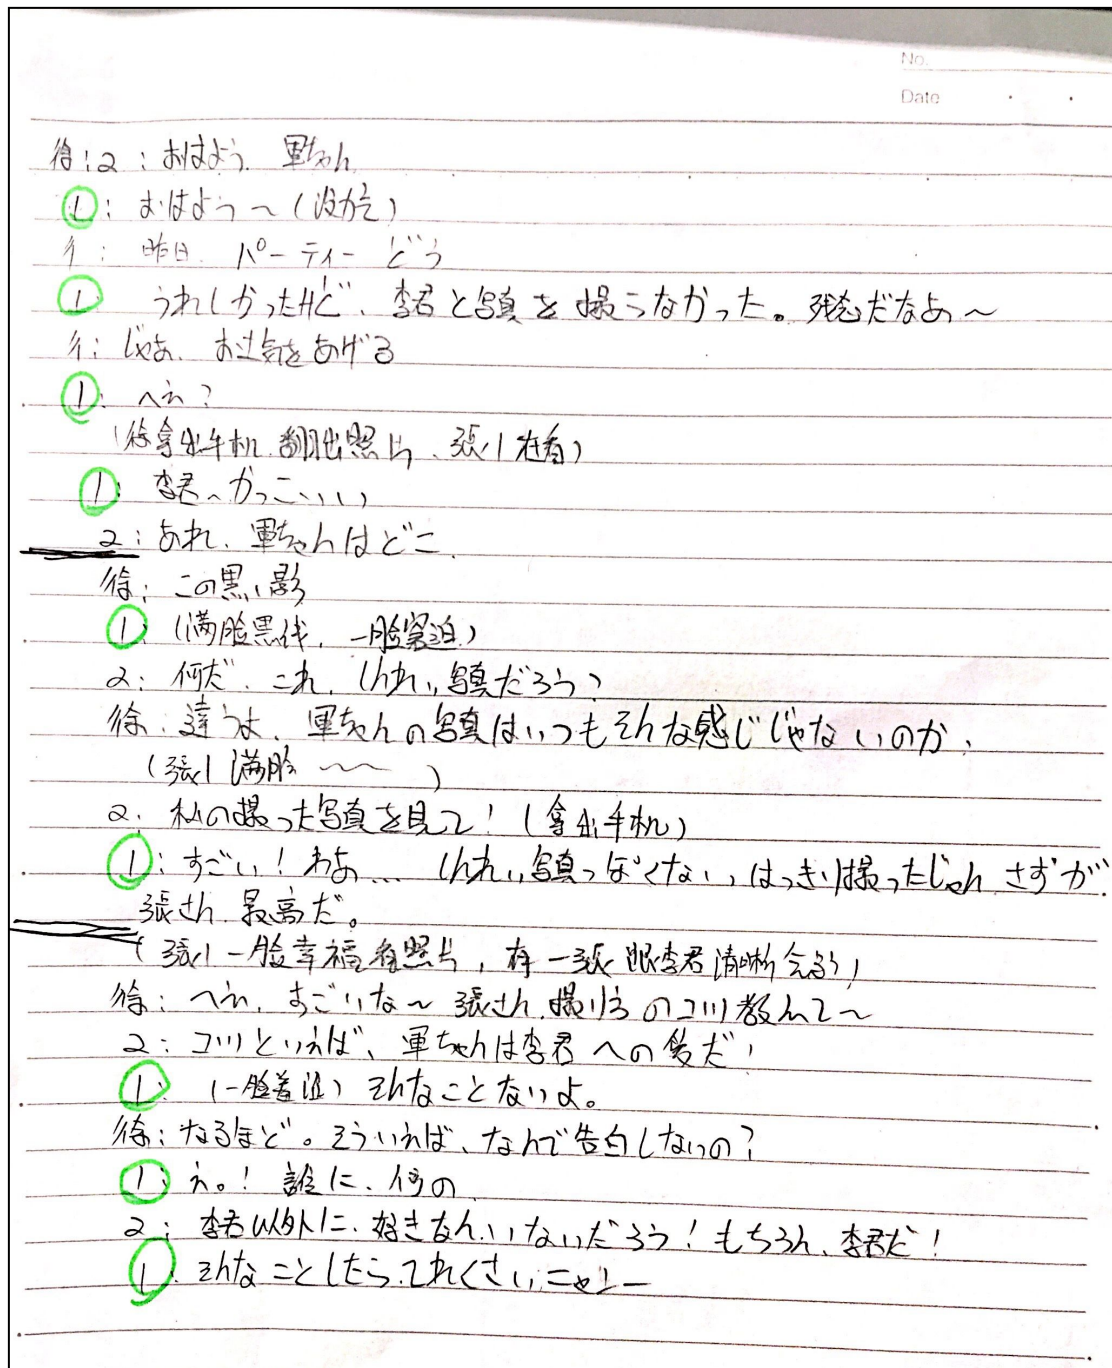 No.
Date
徐:2:おはよう、軍ちゃん
①:おはよう〜(没力气)
彳:昨日、パーティーどう
① うれしかったけど、李君と写真を撮らなかった。残念だなあ〜
彳:じゃあ、お土気をあげる
①:へえ?
(徐拿出手机、翻出照片、張1在看)
①:李君〜かっこいい
2:あれ、軍ちゃんはどこ、
徐:この黒い影
①(満脸黒线,一脸窘迫)
2:何だ、これ、しんれい写真だろう?
徐:違うよ、軍ちゃんの写真はいつもそんな感じじゃないのか、
(張1満脸〜〜)
2:私の撮った写真を見て!(拿出手机)
①:すごい!わあ… しんれい写真っぽくない、はっきり撮ったじゃん さずが
張さん、最高だ。
(張1一脸幸福看照片,有一張跟李君清晰合影)
徐:へえ、すごいな〜 張さん、撮り方のコツ教えて〜
2:コツといえば、軍ちゃんは李君への愛だ!
①:(一脸羞涩)そんなことないよ。
徐:なるほど。そういえば、なんで告白しないの?
①:え。! 誰に、何の
2:李君以外に、好きなん、いないだろう!もちろん、李君だ!
①:そんなことしたら、てれくさい